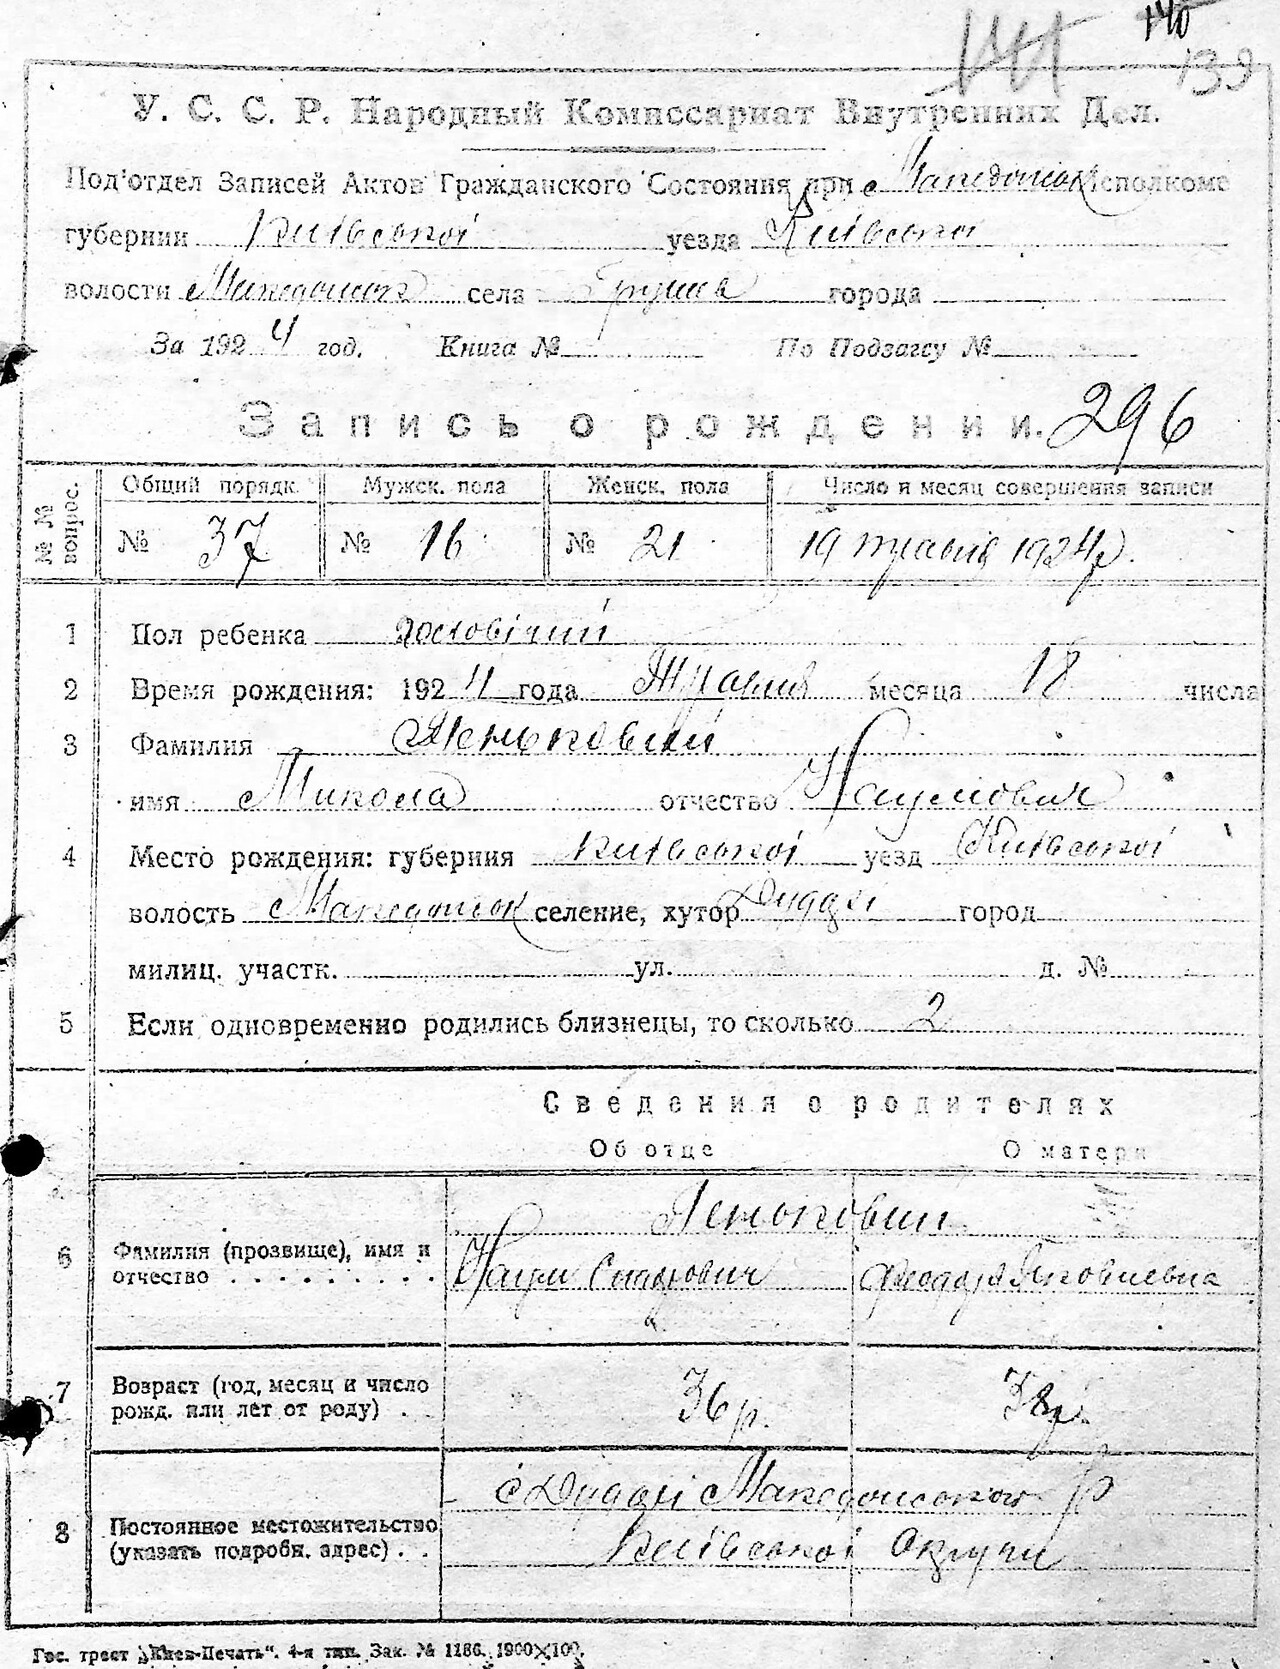 141 140
139
У. С. С. Р. Народный Комиссариат Внутренних Дел.
Под'отдел Записей Актов Гражданского Состояния при Македонск Исполкоме
губернии Київської уезда Київської
волости Македонськ села города
За 1924 год. Книга № По Подзагсу №
Запись о рождении. 296
№ № вопрос.
Общий порядк. Мужск. пола Женск. пола Число и месяц совершения записи
№ 37 № 16 № 21 19 травня 1924 р.
1 Пол ребенка чоловічий
2 Время рождения: 1924 года Травня месяца 18 числа
3 Фамилия
имя Микола отчество Наумович
4 Место рождения: губерния Київської уезд Київської
волость Македонськ селение, хутор Дударі город
милиц. участк. ул. д. №
5 Если одновременно родились близнецы, то сколько 2
Сведения о родителях
Об отце О матери
6 Фамилия (прозвище), имя и отчество
Наум Феодора Яковлевна
7 Возраст (год, месяц и число рожд. или лет от роду) . .
36 р. 38 р.
8 Постоянное местожительство (указать подробн. адрес) . .
с Дударі Македонського р
Київської Округи
Гос. трест „Киев-Печать“. 4-я тип. Зак. № 1186. 1900×100.